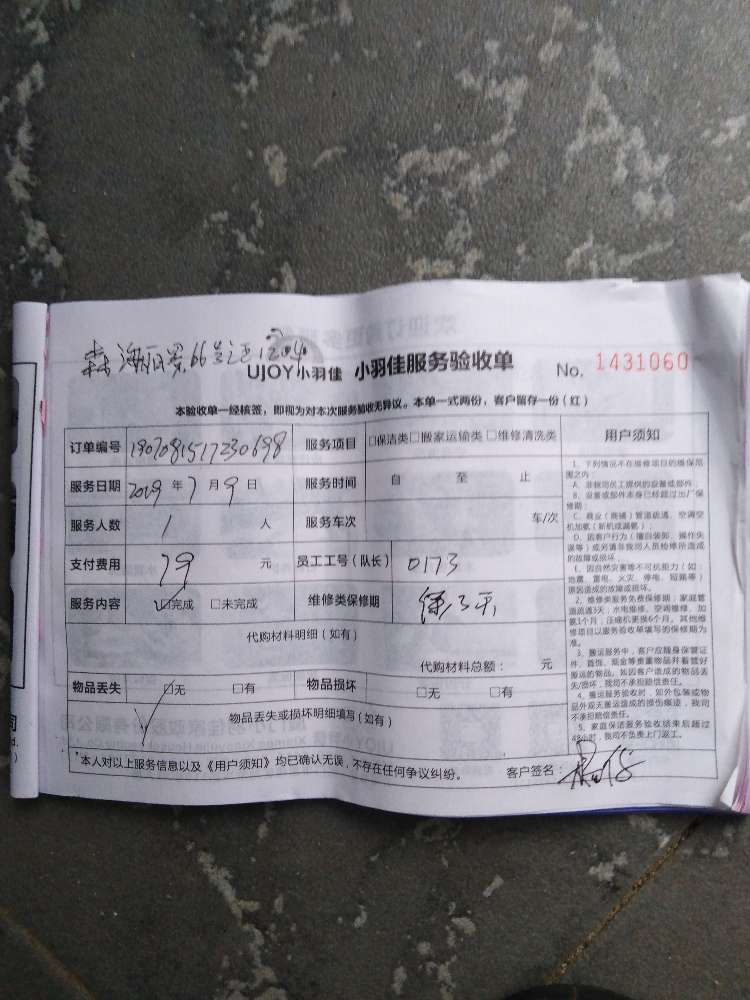 海 66号 1204
UJOY小羽佳 小羽佳服务验收单 No. 1431060
本验收单一经核签，即视为对本次服务验收无异议。本单一式两份，客户留存一份（红）
订单编号 1907081517230698 服务项目 □保洁类□搬家运输类□维修清洗类
服务日期 2019 年 7 月 9 日 服务时间 自 至 止
服务人数 1 人 服务车次 车/次
支付费用 79 元 员工工号(队长) 0173
服务内容 ☑完成 □未完成 维修类保修期
代购材料明细（如有）
代购材料总额： 元
物品丢失 □无 □有 物品损坏 □无 □有
物品丢失或损坏明细填写（如有）
本人对以上服务信息以及《用户须知》均已确认无误，不存在任何争议纠纷。 客户签名：
用户须知
1、下列情况不在维修项目的维保范
围之内：
A、非我司员工提供的设备或部件；
B、设备或部件本身已经超过出厂保
修期；
C、商业（商铺）管道疏通、空调空
机加氨（新机或漏氨）；
D、因客户行为（擅自装卸、操作失
误等）或另请非我司人员检修所造成
的故障或损坏。
E、因自然灾害等不可抗拒力（如：
地震、雷电、火灾、停电、短路等）
原因造成的故障或损坏。
2、维修类服务免费保修期：家庭管
道疏通3天；水电维修、空调维修、加
氨1个月；压缩机更换6个月。其他维
修项目以服务验收单填写的保修期为
准。
3、搬运服务中，客户应随身保管证
件、首饰、现金等贵重物品并看管好
搬运的物品。如因客户造成的物品丢
失/损坏，我司不承担赔偿责任。
4、搬运服务验收时，如外包装或物
品外观无搬运造成的损伤痕迹，我司
不承担赔偿责任。
5、家庭保洁服务验收结束后超过
48小时，我司不负责上门返工。